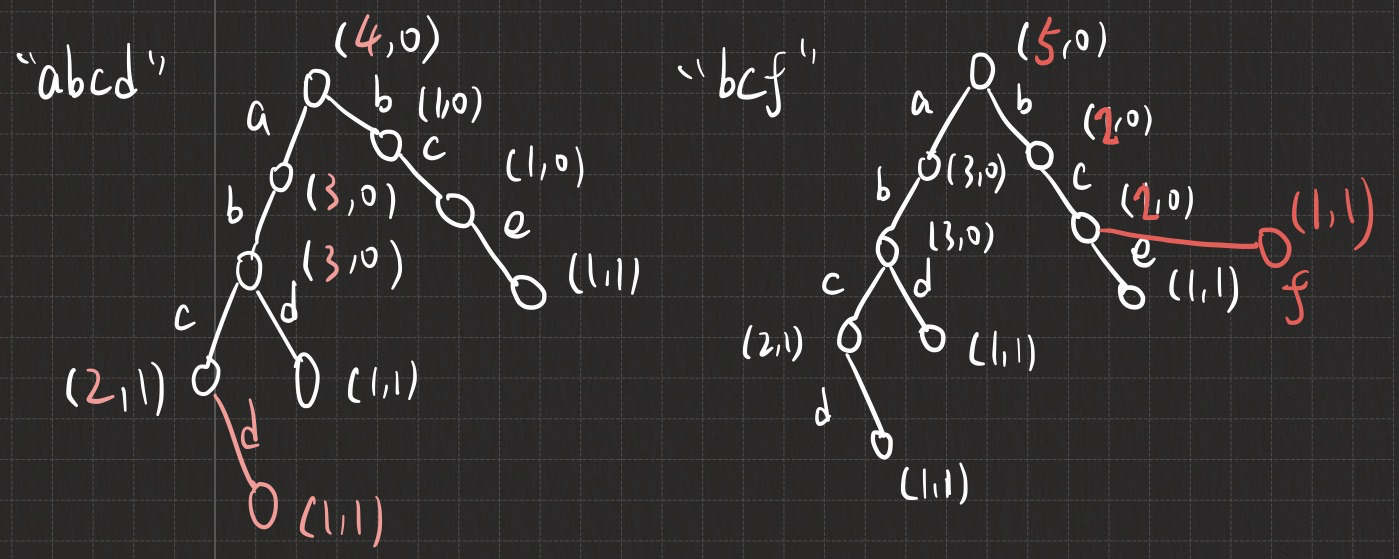 “abcd”
(4,0)
a
b
(1,0)
c
(1,0)
b
(3,0)
e
(3,0)
(1,1)
c
d
(2,1)
(1,1)
d
(1,1)
“bcf”
(5,0)
a
b
(2,0)
b
(3,0)
c
(2,0)
(1,1)
(3,0)
e
c
d
(1,1)
f
(2,1)
(1,1)
d
(1,1)